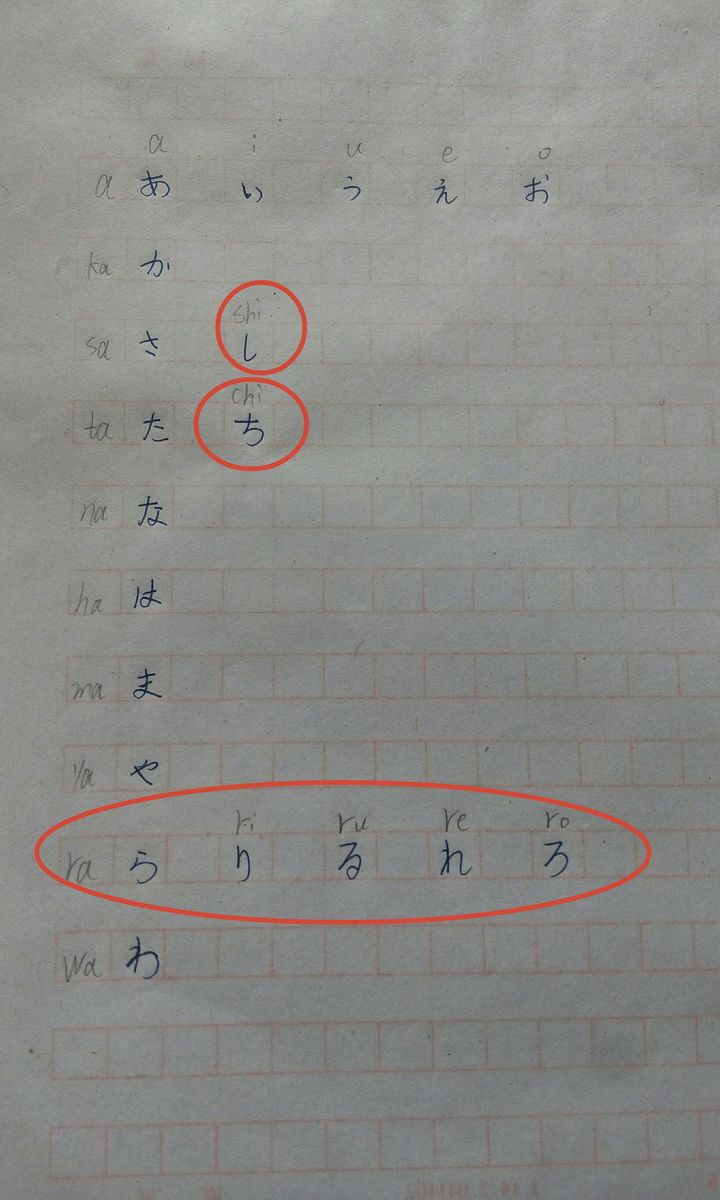 a i u e o
a あ い う え お
ka か
shi
sa さ し
chi
ta た ち
na な
ha は
ma ま
ya や
ri ru re ro
ra ら り る れ ろ
wa わ